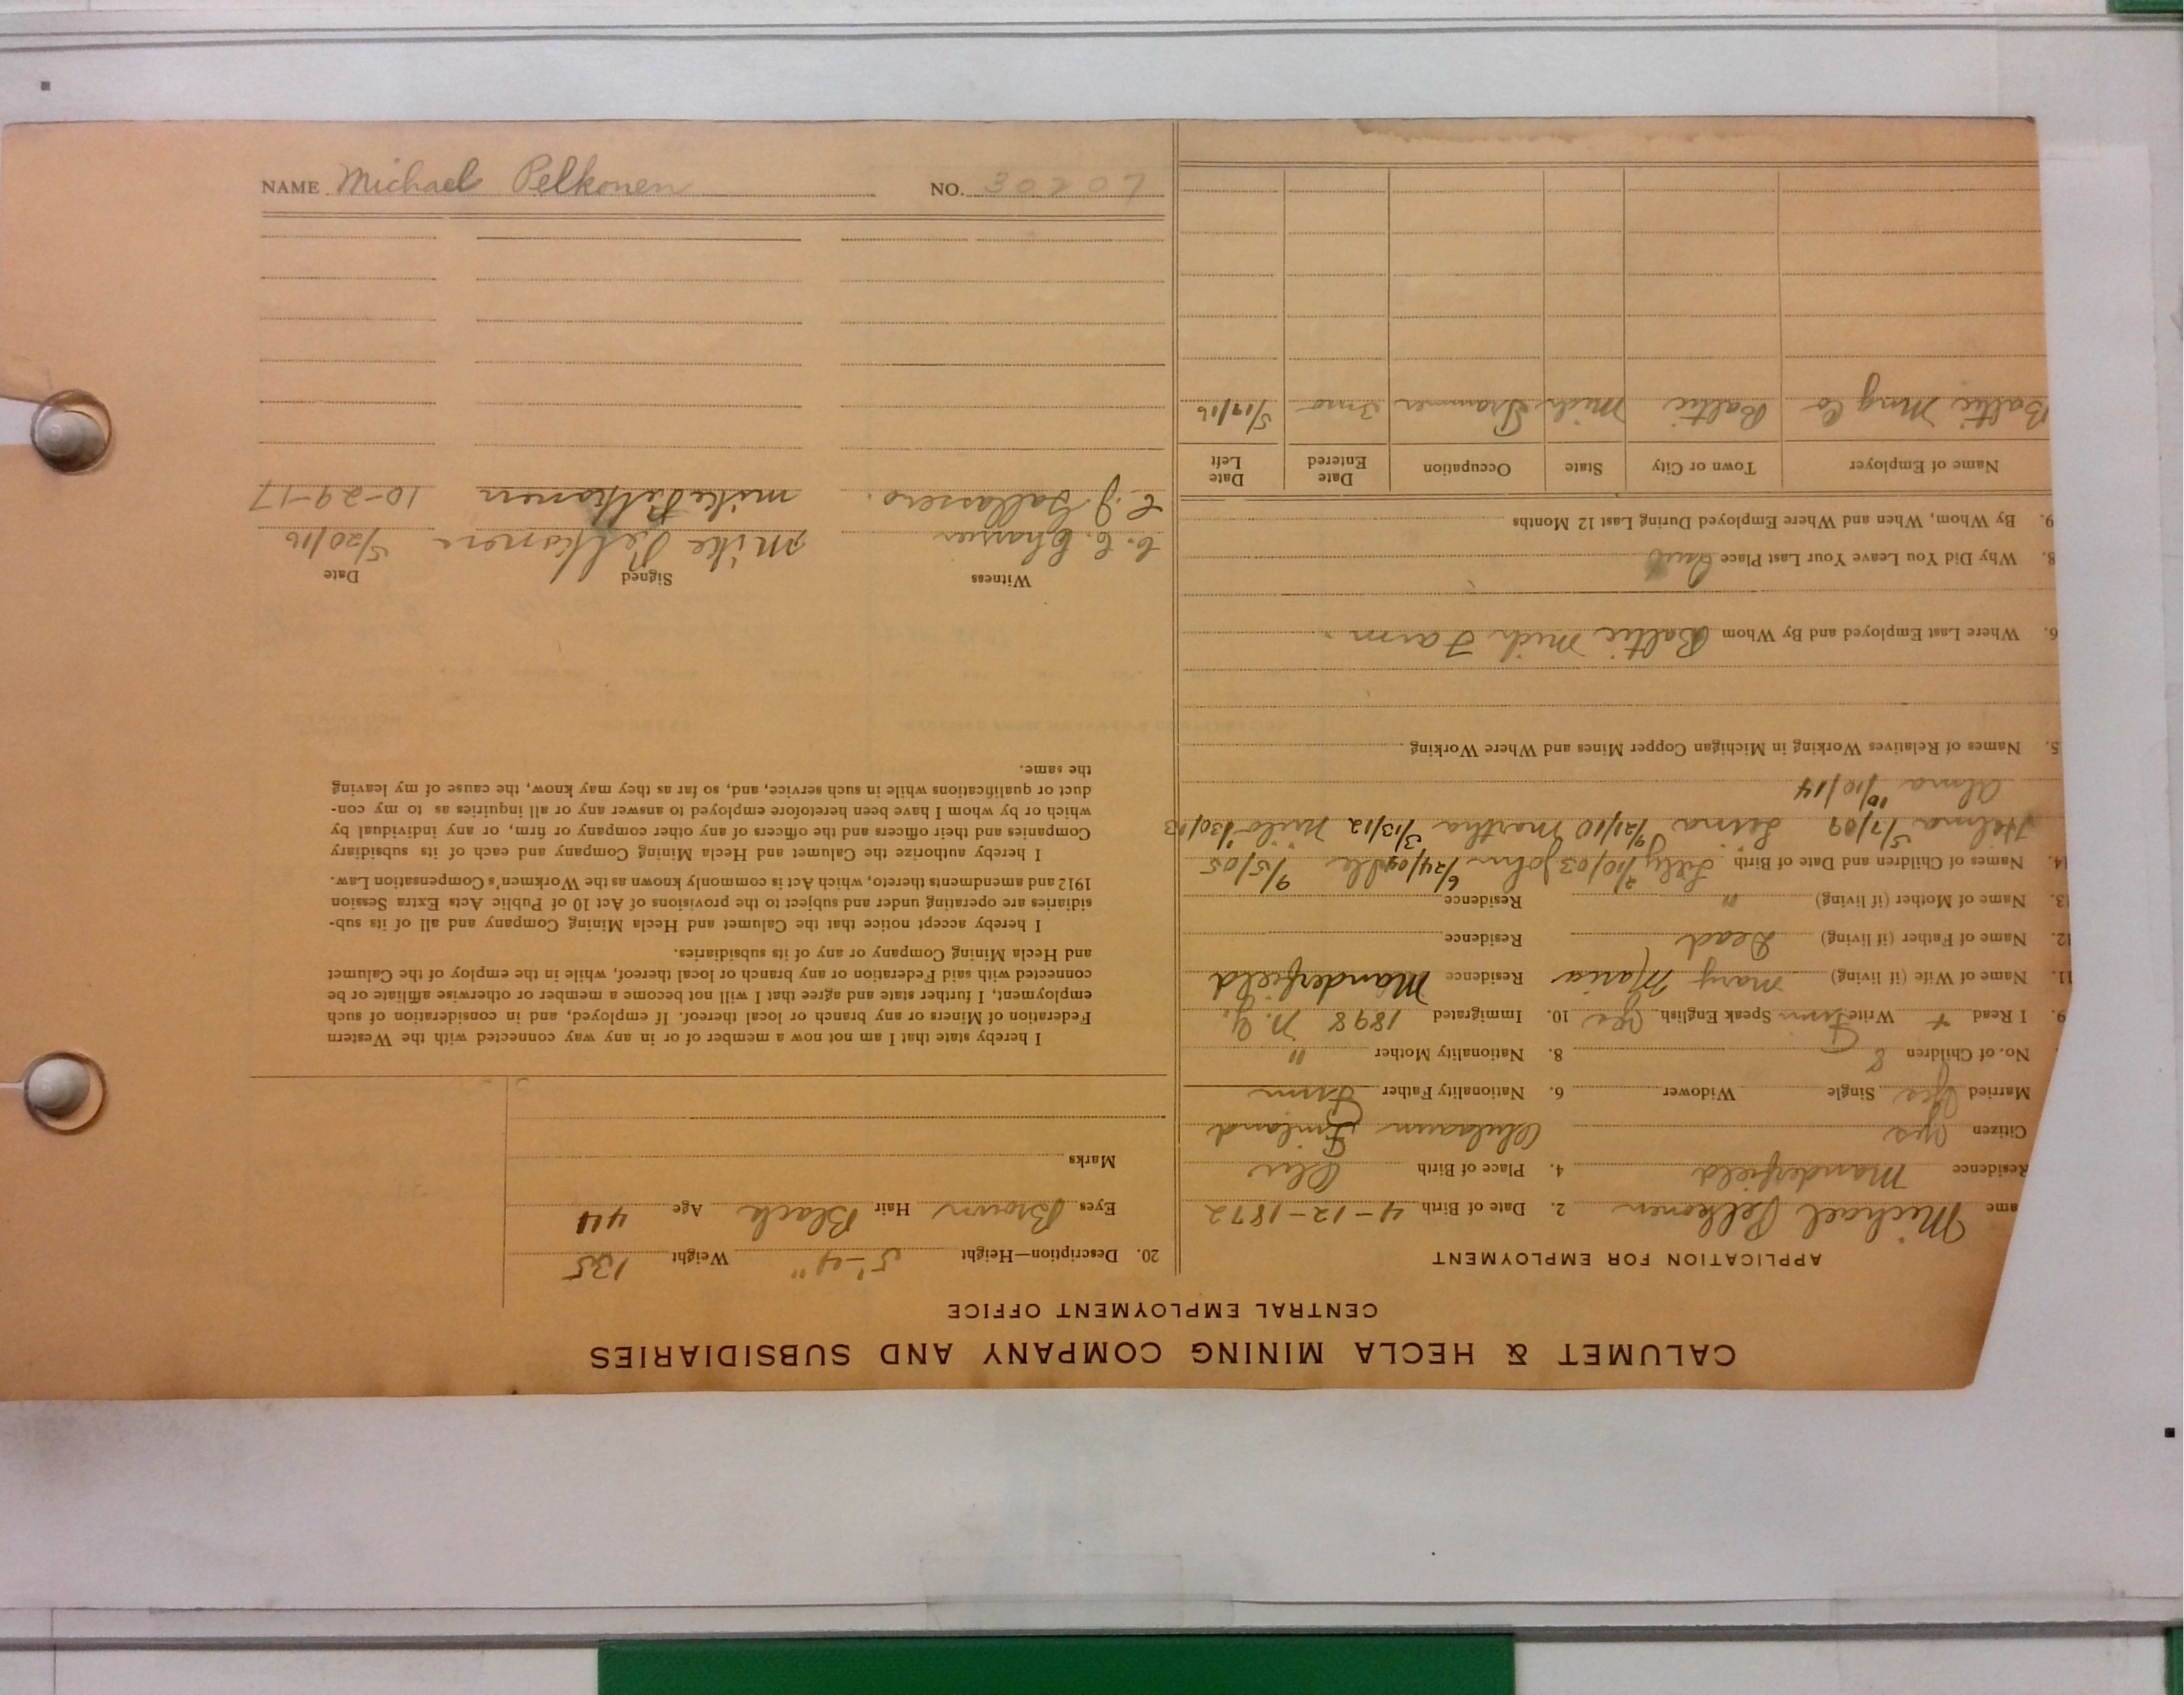 CALUMET & HECLA MINING COMPANY AND SUBSIDIARIES
CENTRAL EMPLOYMENT OFFICE
APPLICATION FOR EMPLOYMENT
ame Michael Pelkonen 2. Date of Birth 4-12-1872
Residence Manderfield 4. Place of Birth
Citizen yes Finland
Married yes Single Widower 6. Nationality Father Finn
No. of Children 8 8. Nationality Mother "
9. I Read + Write Finn Speak English yes 10. Immigrated 1898 N. Y.
11. Name of Wife (if living) Mary Maria Residence Manderfield
12. Name of Father (if living) Dead Residence
13. Name of Mother (if living) " Residence
14. Names of Children and Date of Birth Lilly 2/10/03 John 6/24/04 9/5/05
Hilma 5/7/09 9/21/10 Martha 3/13/12 1/30/13
Alma 10/10/14
5. Names of Relatives Working in Michigan Copper Mines and Where Working
6. Where Last Employed and By Whom Baltic Mich Farm
8. Why Did You Leave Your Last Place Quit
9. By Whom, When and Where Employed During Last 12 Months
Name of Employer Town or City State Occupation Date Entered Date Left
Baltic Mng Co Baltic Mich Trammer 3 mo 5/19/16
20. Description—Height 5'-4" Weight 135
Eyes Brown Hair Black Age 44
Marks
I hereby state that I am not now a member of or in any way connected with the Western
Federation of Miners or any branch or local thereof. If employed, and in consideration of such
employment, I further state and agree that I will not become a member or otherwise affiliate or be
connected with said Federation or any branch or local thereof, while in the employ of the Calumet
and Hecla Mining Company or any of its subsidiaries.
I hereby accept notice that the Calumet and Hecla Mining Company and all of its sub-
sidiaries are operating under and subject to the provisions of Act 10 of Public Acts Extra Session
1912 and amendments thereto, which Act is commonly known as the Workmen's Compensation Law.
I hereby authorize the Calumet and Hecla Mining Company and each of its subsidiary
Companies and their officers and the officers of any other company or firm, or any individual by
which or by whom I have been heretofore employed to answer any or all inquiries as to my con-
duct or qualifications while in such service, and, so far as they may know, the cause of my leaving
the same.
Witness Signed Date
Mike Pelkonen 5/20/16
Mike Pelkonen 10-29-17
NAME Michael Pelkonen NO. 30207